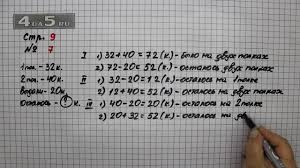 4DA5.RU
Стр. 9
№ 7
1 пол. - 32 к.
2 пол. - 40 к.
взяли - 20 к.
осталось - ? к.
I 1) 32+40=72 (к.) - было на двух полках
2) 72-20=52 (к.) - осталось двух полках
II 1) 32-20=12 (к.) - осталось на 1 полке
2) 12+40=52 (к.) - осталось на двух полках
III 1) 40-20=20 (к.) - осталось на 2 полке
2) 20+32=52 (к.) - осталось на дв